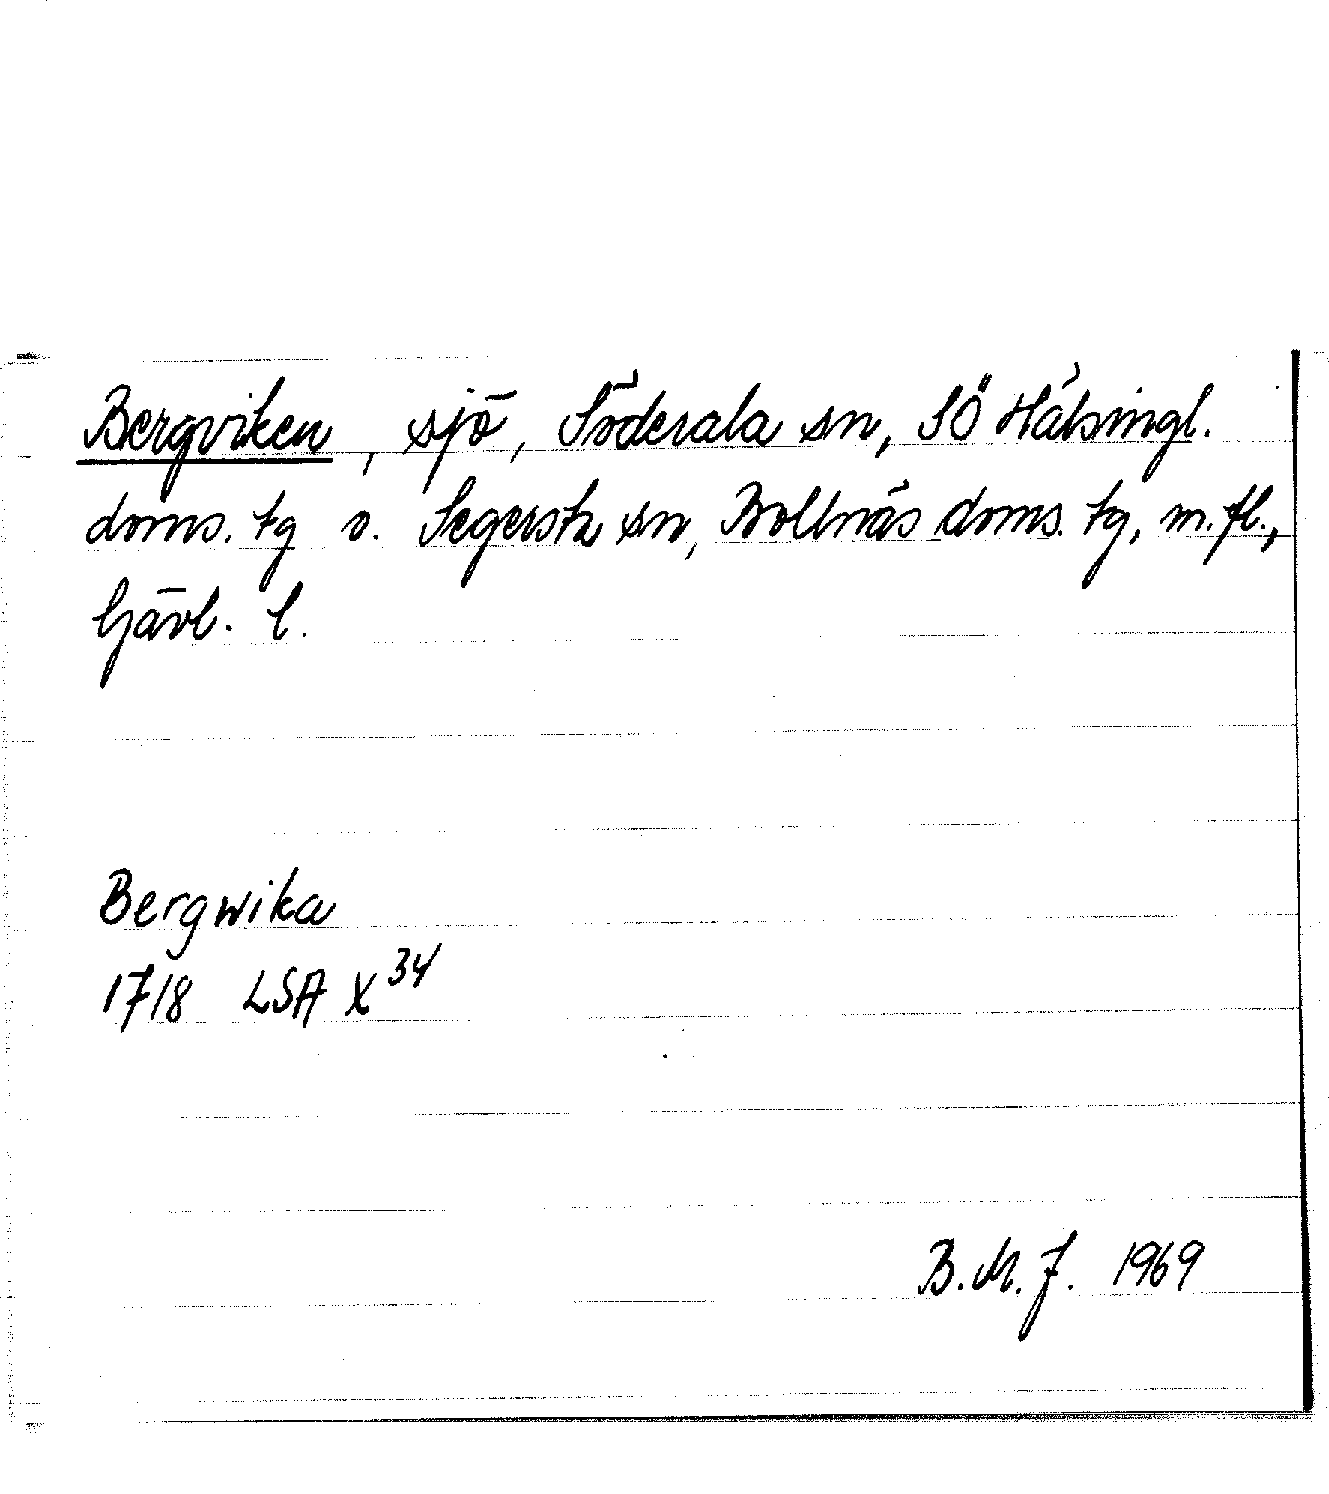 Bergviken, sjö, Söderala sn, SÖ Hälsingl.
doms. tg o. Segersta sn, Bollnäs doms. tg, m. fl.,
Gävl. l.
Bergwika
1718 LSA X 34
B. M. J. 1969